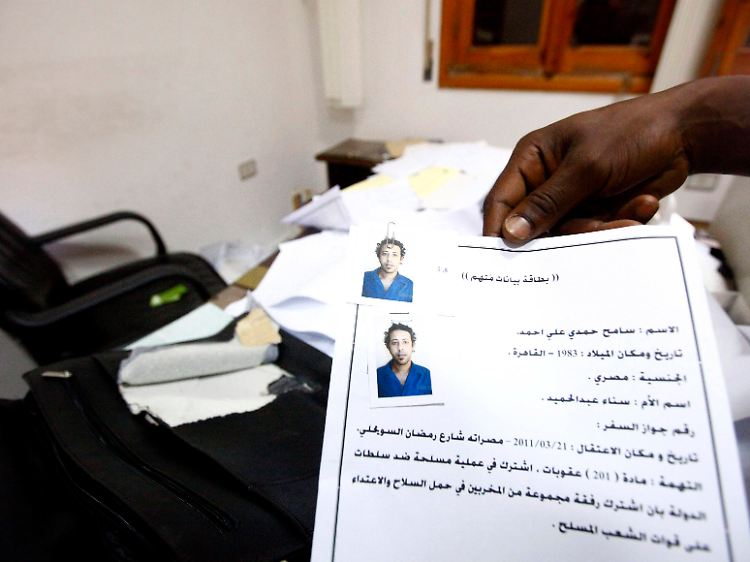 (( بطاقة بيانات متهم ))
الاسم : سامح حمدي علي احمد.
تاريخ ومكان الميلاد : 1983 – القاهرة .
الجنسية : مصري .
اسم الأم : سناء عبدالحميد .
رقم جواز السفر :
تاريخ و مكان الاعتقال : 2011/03/21 – مصراته شارع رمضان السويحلي.
التهمة : مادة ( 201 ) عقوبات . اشترك في عملية مسلحة ضد سلطات
الدولة بان اشترك رفقة مجموعة من المخربين في حمل السلاح والاعتداء
على قوات الشعب المسلح .